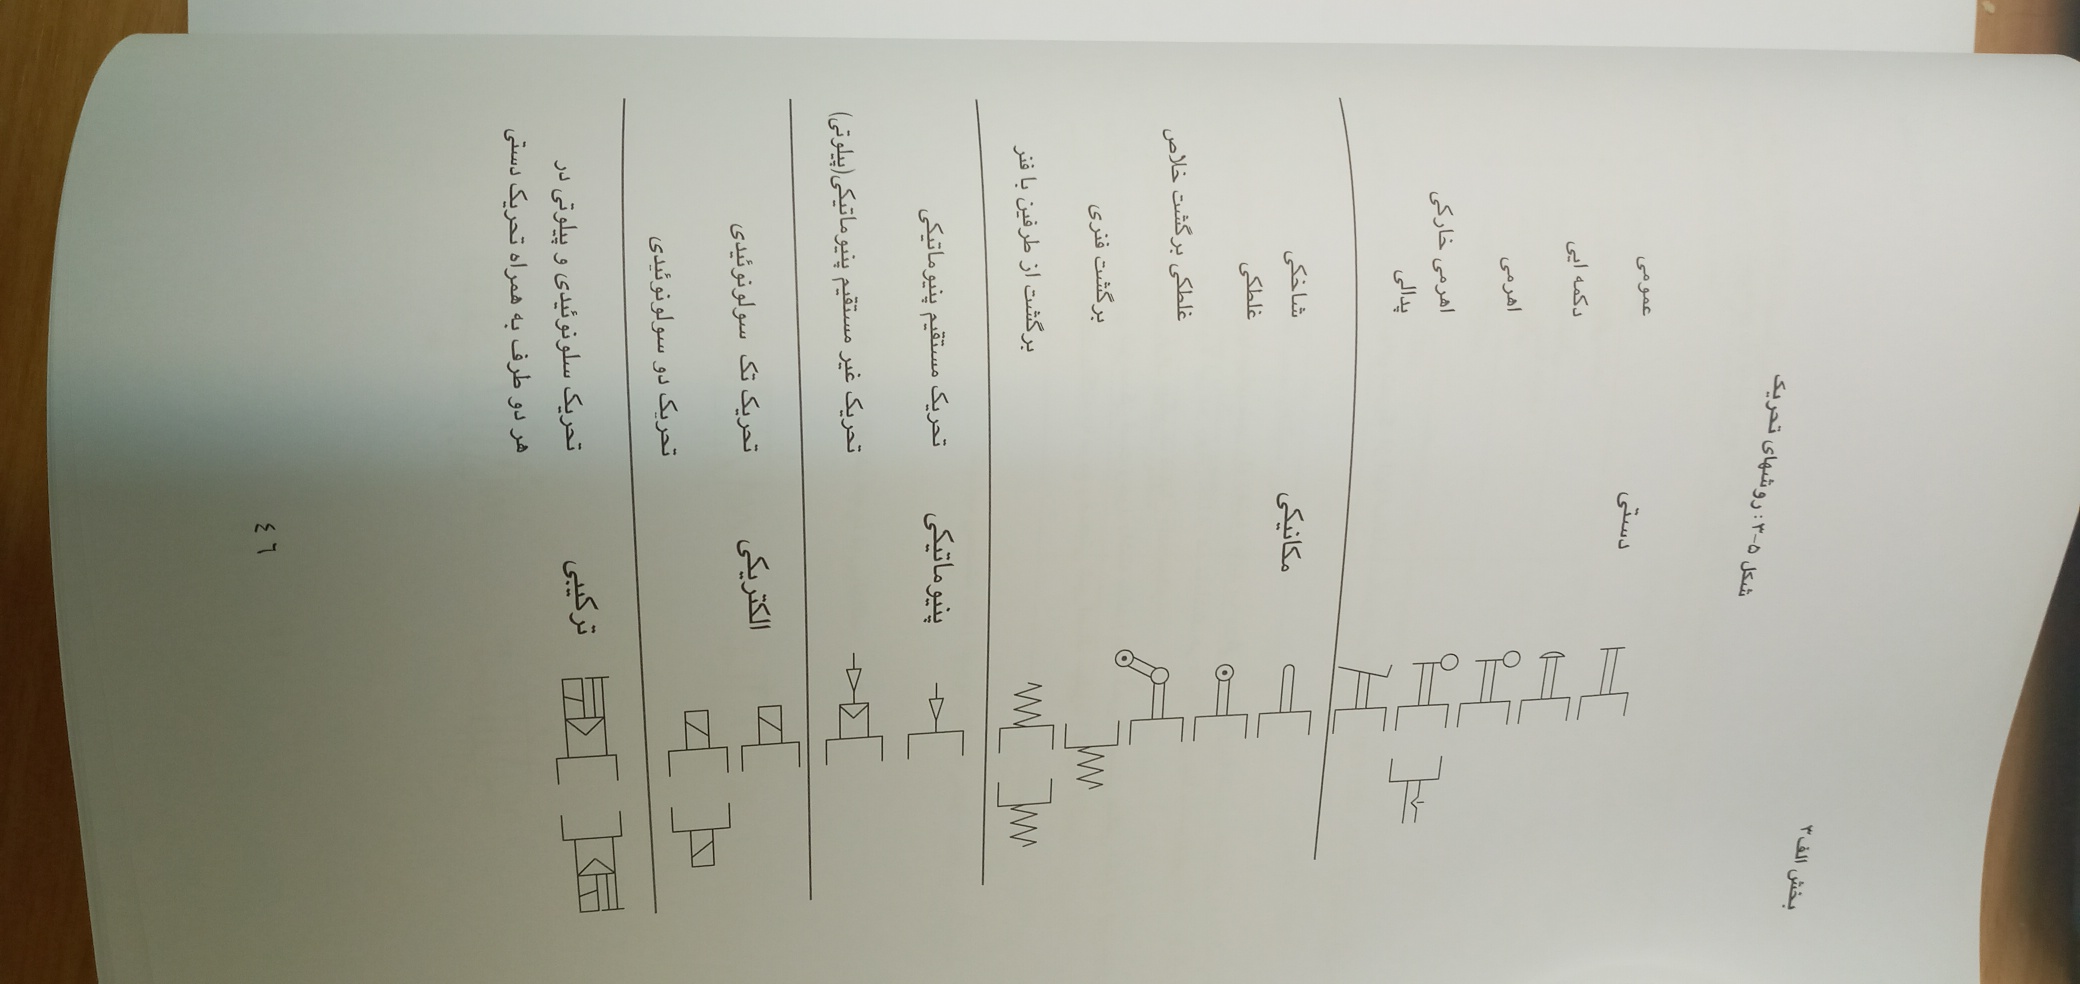 بخش الف ۳
شکل ۵-۳: روشهای تحریک
دستی
عمومی
دکمه ایی
اهرمی
اهرمی خارکی
پدالی
مکانیکی
شاخکی
غلطکی
غلطکی برگشت خلاص
برگشت فنری
برگشت از طرفین با فنر
پنیوماتیکی
تحریک مستقیم پنیوماتیکی
تحریک غیر مستقیم پنیوماتیکی(پیلوتی)
الکتریکی
تحریک تک سولونوئیدی
تحریک دو سولونوئیدی
ترکیبی
تحریک سلونوئیدی و پیلوتی در
هر دو طرف به همراه تحریک دستی
٤٦